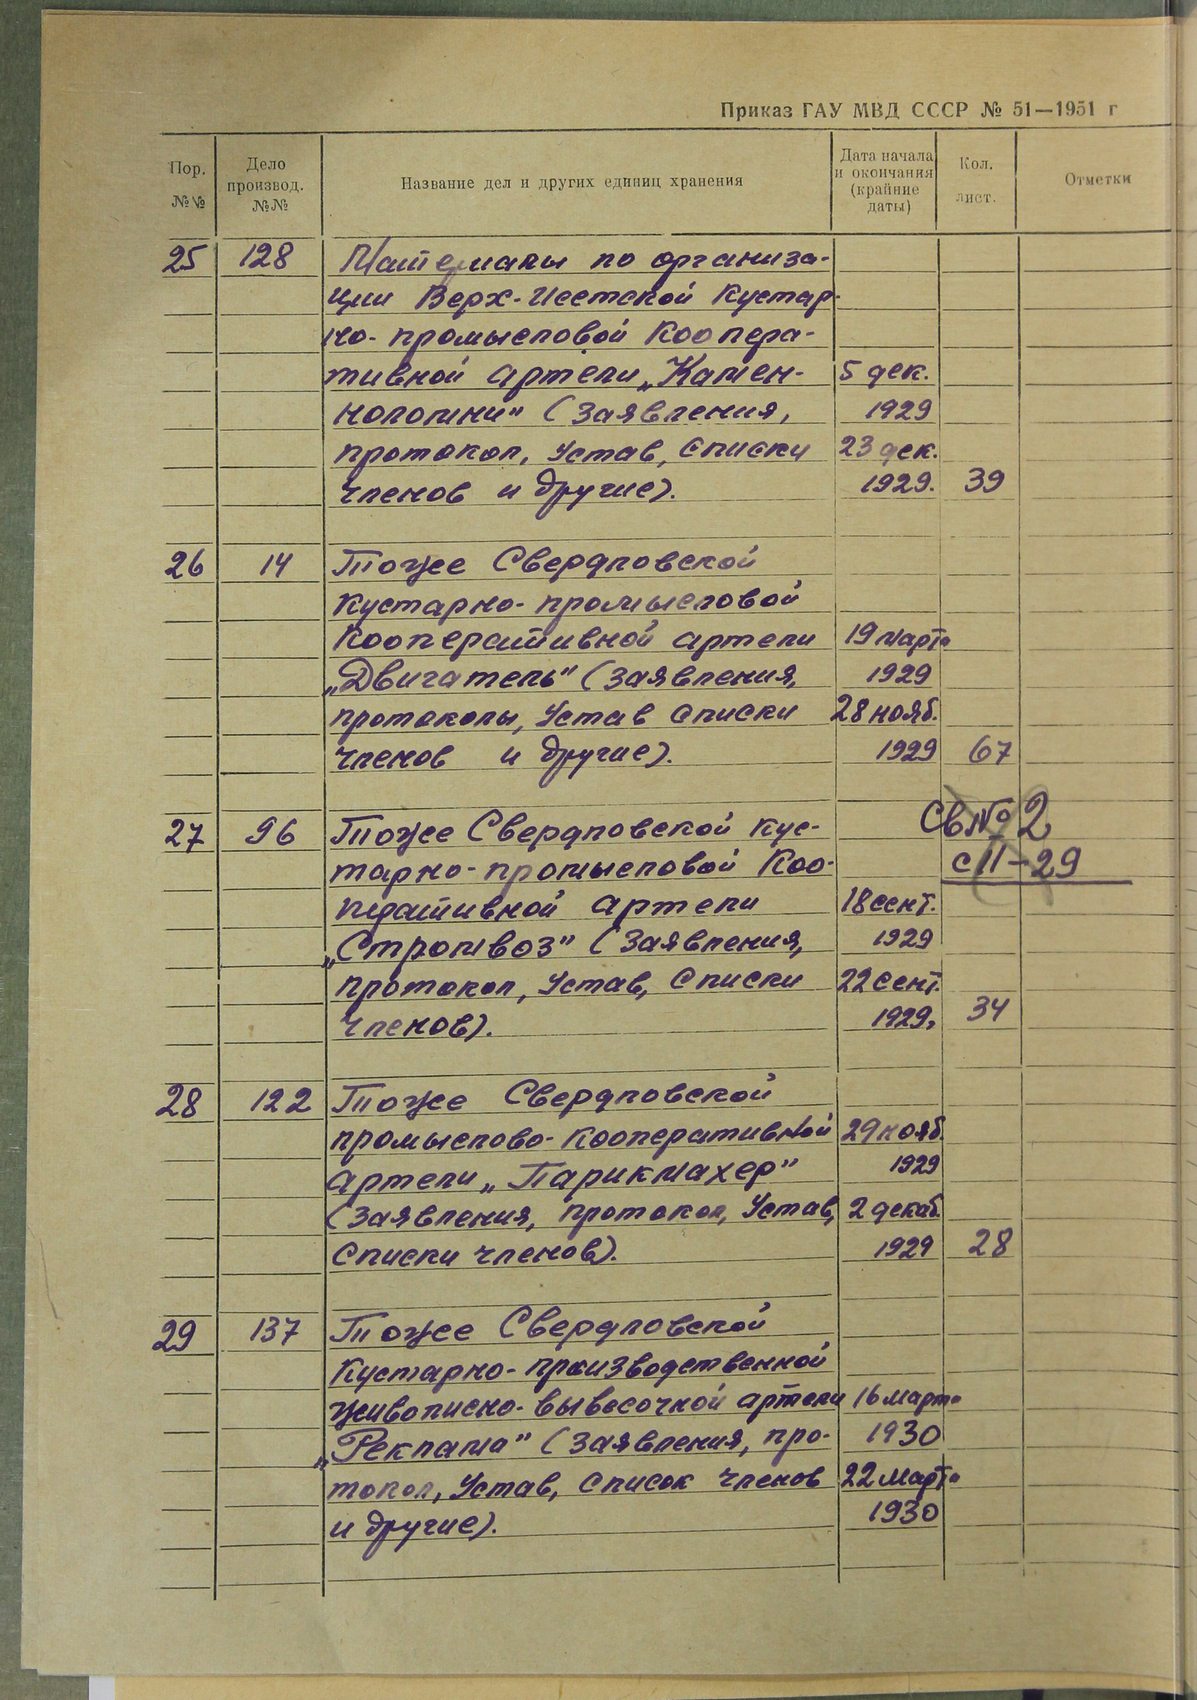 Приказ ГАУ МВД СССР № 51—1951 г
Пор. №№
Дело производ. №№
Название дел и других единиц хранения
Дата начала и окончания (крайние даты)
Кол. лист.
Отметки
25 128 Материалы по организа-
ции Верх-Исетской Кустар-
но-промысловой Коопера-
тивной артели „Камен- 5 дек.
ноломни" (Заявления, 1929
протокол, Устав, Списки 23 дек.
членов и другие). 1929. 39
26 14 Тоже Свердловской
Кустарно-промысловой
Кооперативной артели 19 марта
„Двигатель" (Заявления, 1929
протоколы, Устав списки 28 нояб.
членов и другие). 1929 67
Св№ 2
с 11-29
27 96 Тоже Свердловской кус-
тарно-промысловой Коо-
перативной артели 18 сент.
„Стромвоз" (Заявления, 1929
протокол, Устав, Списки 22 сент.
членов). 1929, 34
28 122 Тоже Свердловской
промыслово-кооперативной 29 нояб.
артели „Парикмахер" 1929
(Заявления, протокол, Устав, 2 декаб.
Списки членов). 1929 28
29 137 Тоже Свердловской
Кустарно-производственной
живописно-вывесочной артели 16 марта
„Реклама" (Заявления, про- 1930
токол, Устав, Список членов 22 марта
и другие). 1930